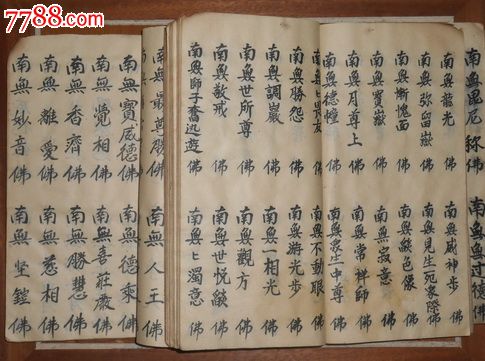 7788.com
南無毘尼弥佛 南無無过德佛
南無龍光佛 南無威神步佛
南無弥留嶽佛 南無見生死眾際佛
南無慚愧面佛 南無色像佛
南無寶嶽佛 南無寂意佛
南無月尊上佛 南無常祥師佛
南無德幢佛 南無眾生中尊佛
南無匕畏友佛 南無不動眼佛
南無勝怨佛 南無游光步佛
南無調巖佛 南無一相光佛
南無世所尊佛 南無觀方佛
南無敬戒佛 南無世悅佛
南無師子奮迅遊佛 南無匕濁意佛
南無最尊勝佛 南無人王佛
南無寶威德佛 南無德乘佛
南無覺相佛 南無善莊嚴佛
南無香濟佛 南無勝慧佛
南無離愛佛 南無慈相佛
南無妙音佛 南無堅鎧佛